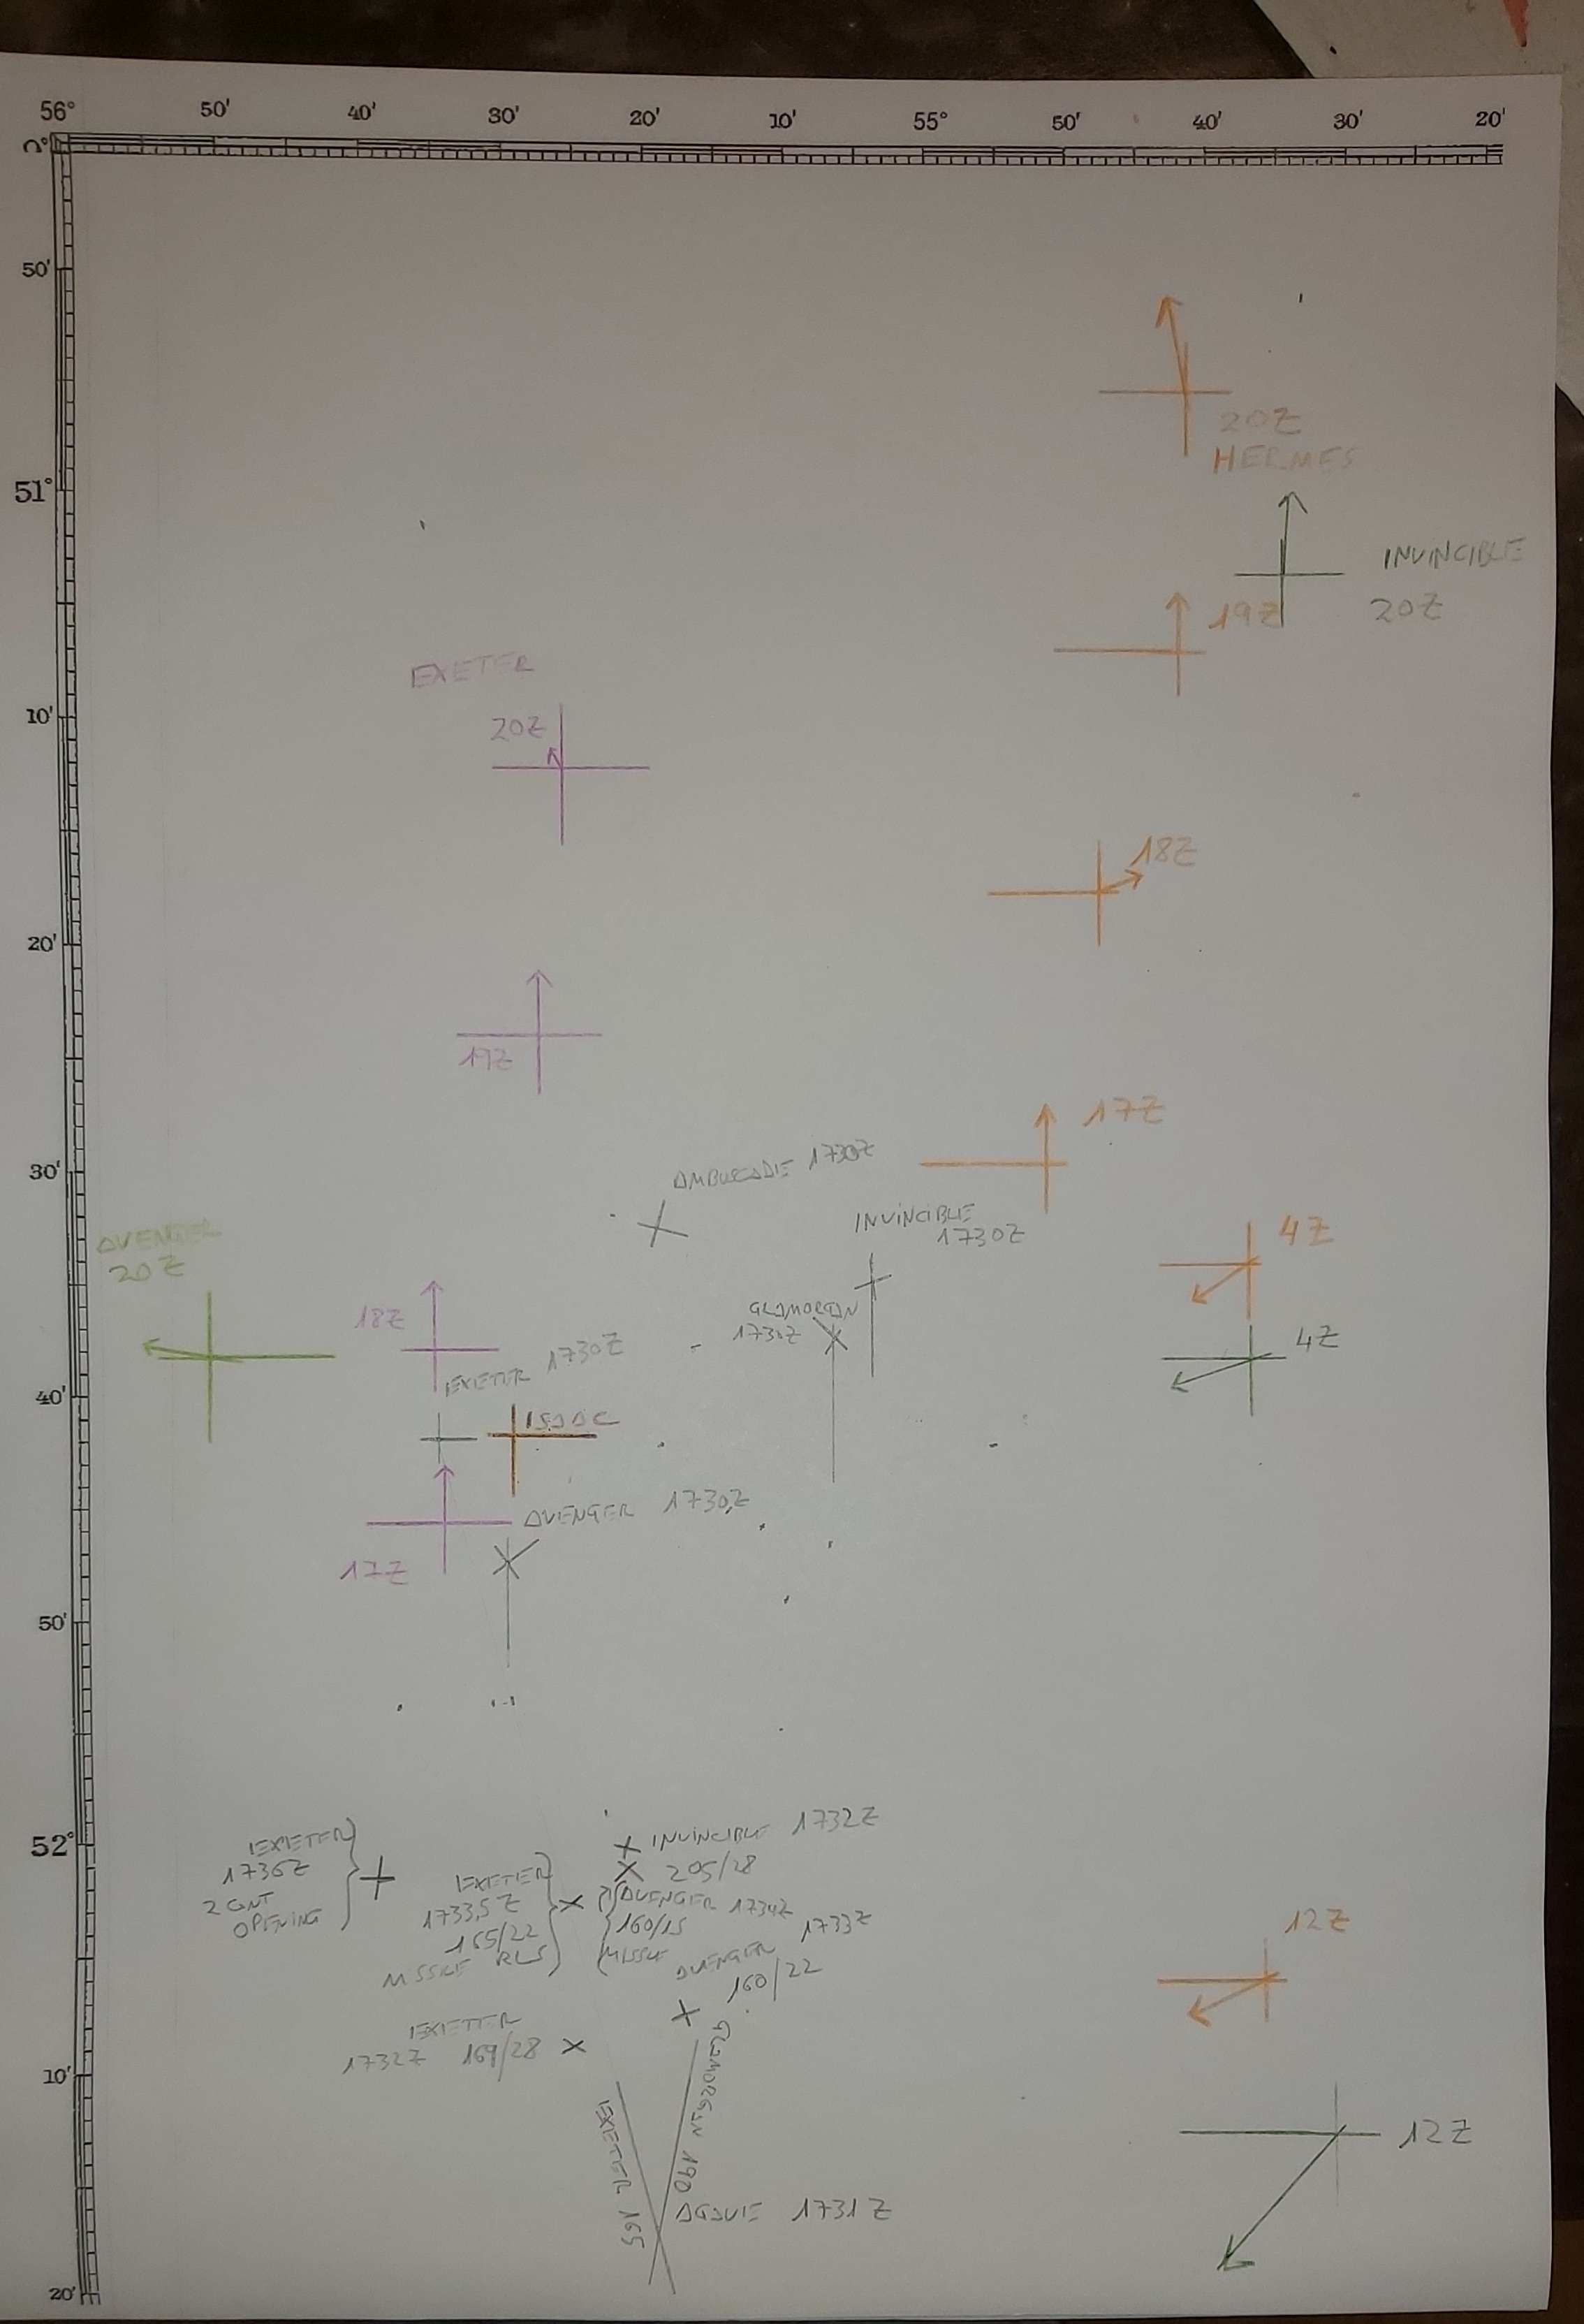 56° 50' 40' 30' 20' 10' 55° 50' 40' 30' 20'
50'
20Z
HERMES
51°
INVINCIBLE
20Z
19Z
EXETER
10'
20Z
18Z
20'
19Z
17Z
30'
AMBUSCADE 1730Z
INVINCIBLE
1730Z
AVENGER
20Z
4Z
18Z
GLAMORGAN
1730Z
4Z
EXETER 1730Z
40'
ISAAC
AVENGER 1730Z
17Z
50'
52°
EXETER
1736Z
2 CNT
OPENING
INVINCIBLE 1732Z
205/28
EXETER
1733,5Z
165/22
MISSILE RLS
AVENGER 1734Z
160/15
MISSILE
AVENGER 1733Z
160/22
12Z
EXETER
1732Z 169/28
10'
GLAMORGAN 190
EXETER 165
12Z
AGAVE 1731Z
20'